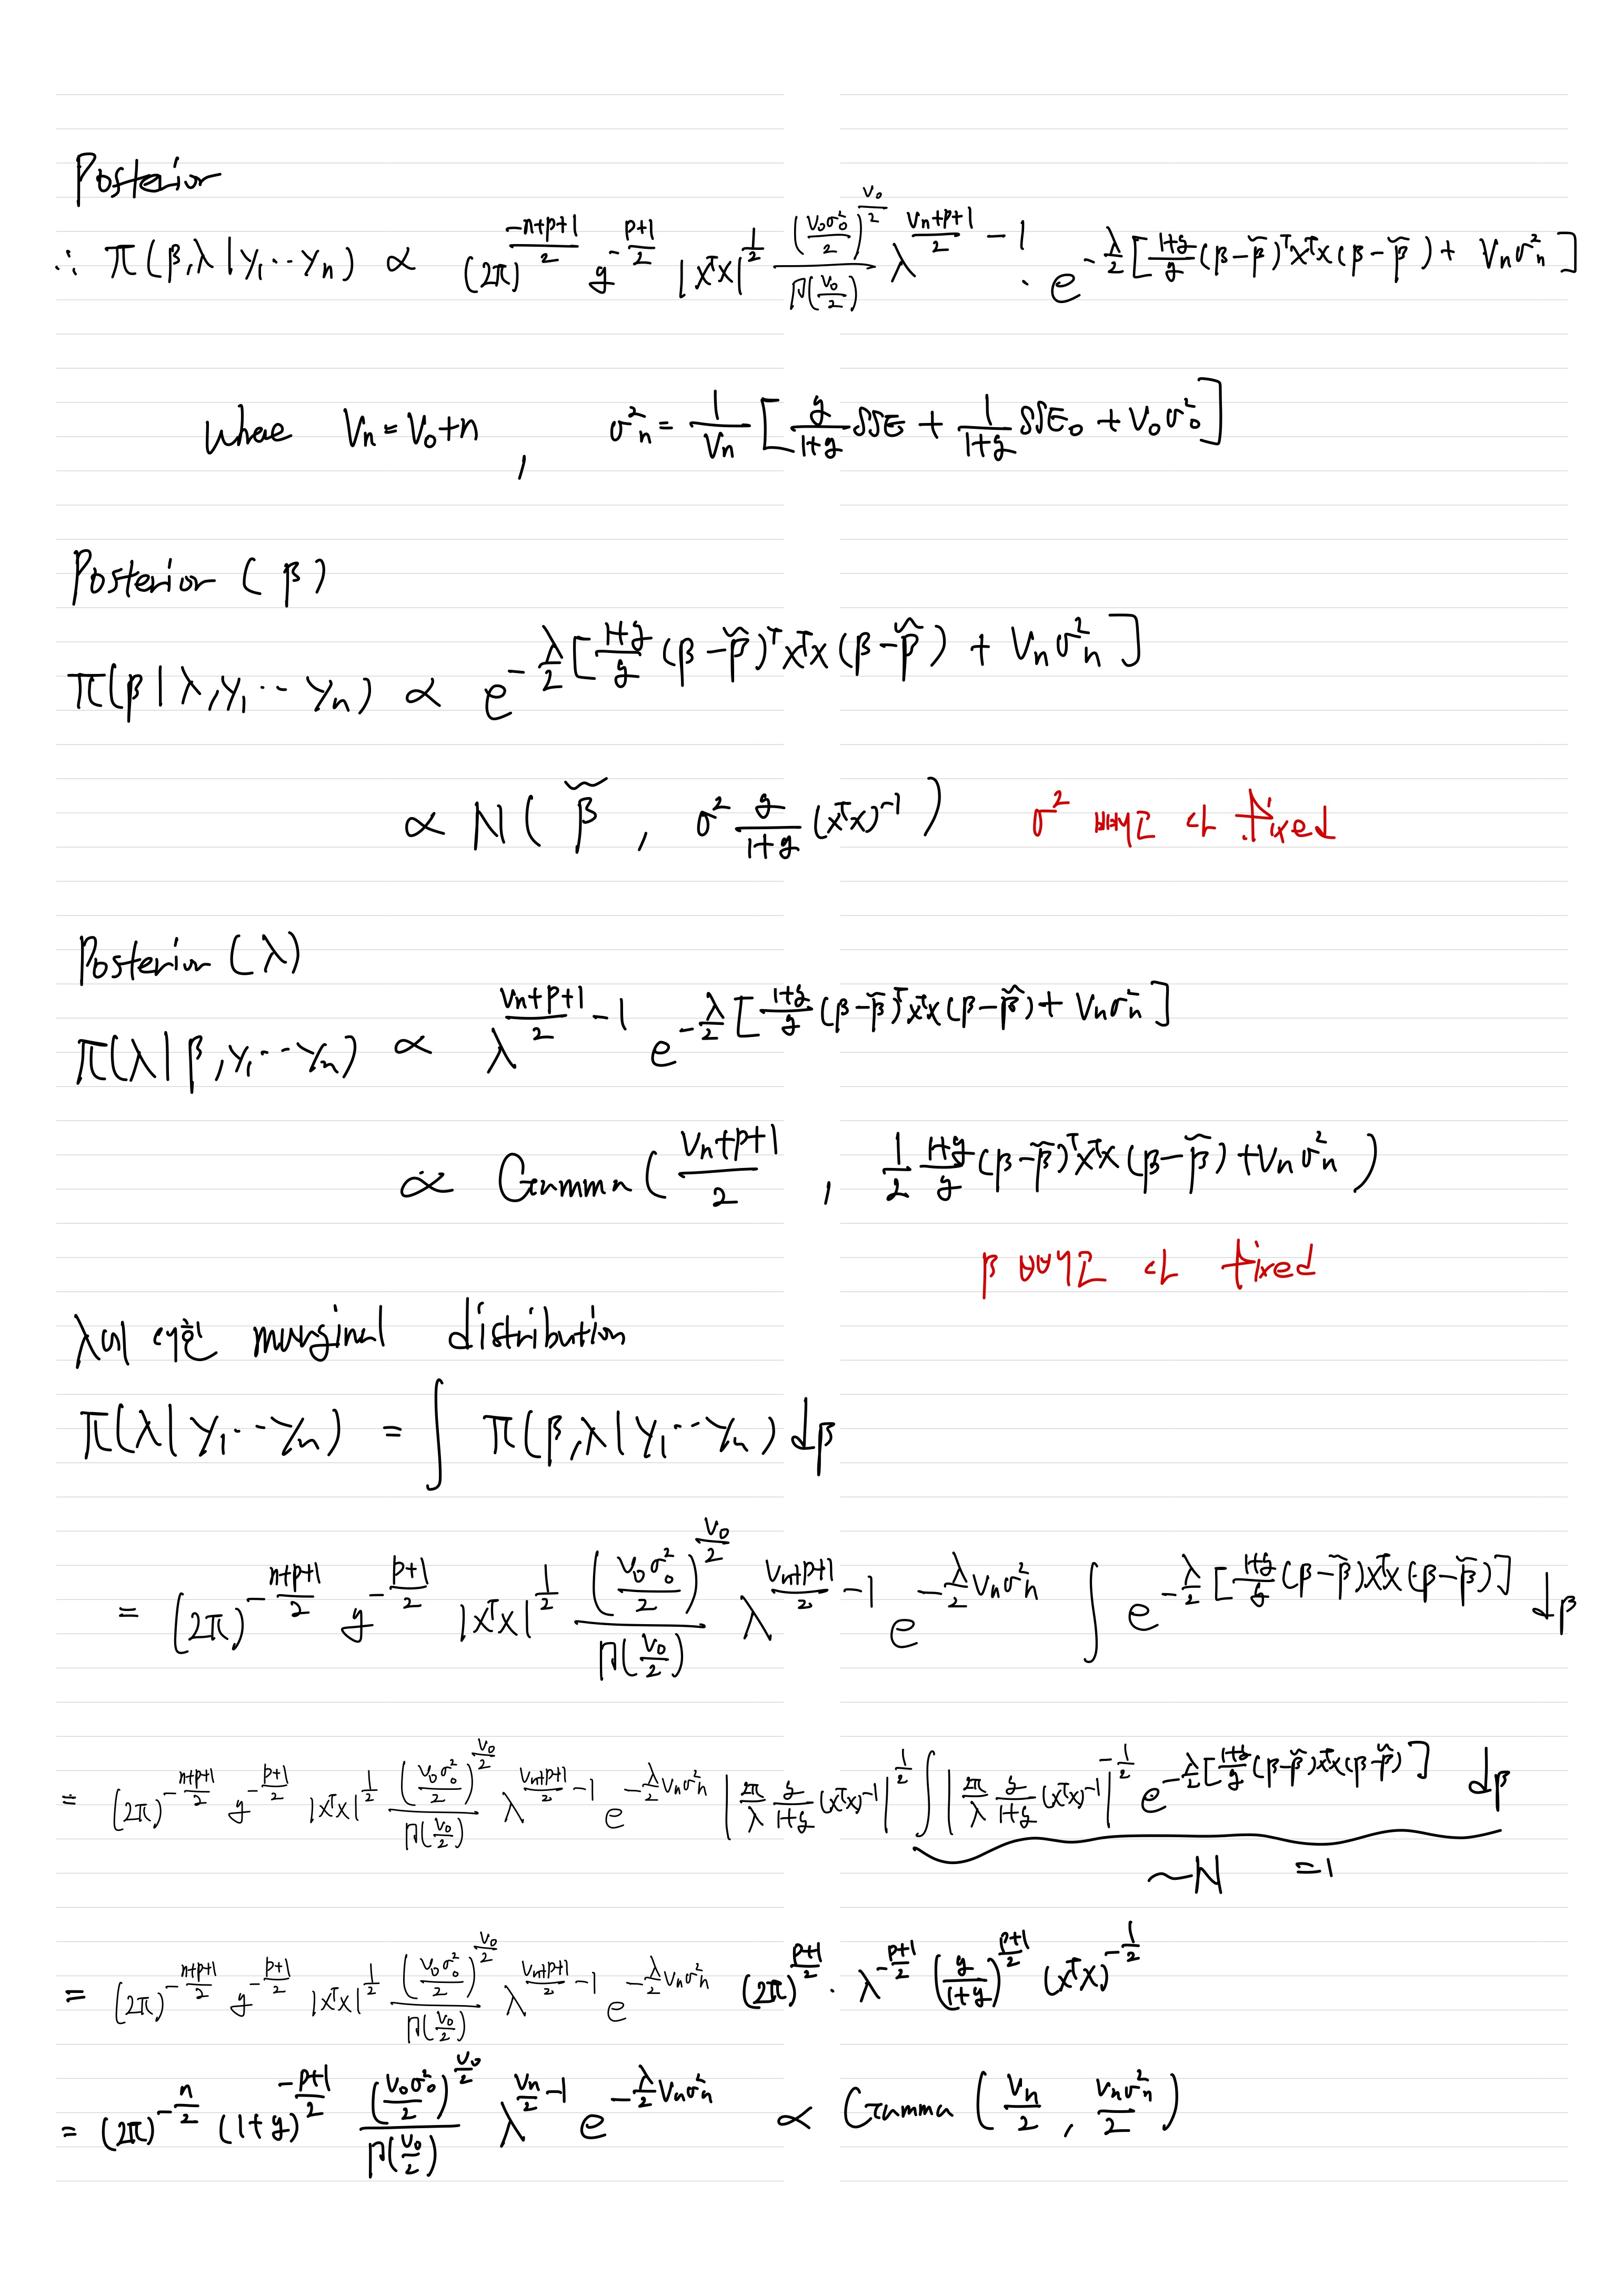 Posterior
∴ π(β,λ|y₁⋯yₙ) ∝ (2π)^{\frac{-n+p+1}{2}} g^{-\frac{p+1}{2}} |XᵀX|^{\frac{1}{2}} \frac{(\frac{ν₀σ₀²}{2})^{\frac{ν₀}{2}}}{Γ(\frac{ν₀}{2})} λ^{\frac{νₙ+p+1}{2}-1} · e^{-\frac{λ}{2}[\frac{1+g}{g}(β-\tilde{β})ᵀXᵀX(β-\tilde{β}) + νₙσₙ²]}
where νₙ=ν₀+n , σ²ₙ = \frac{1}{νₙ}[\frac{g}{1+g}SSE + \frac{1}{1+g}SSE₀ + ν₀σ₀²]
Posterior (β)
π(β|λ,y₁⋯yₙ) ∝ e^{-\frac{λ}{2}[\frac{1+g}{g}(β-\tilde{β})ᵀXᵀX(β-\tilde{β}) + νₙσₙ²]}
∝ N(\tilde{β}, σ²\frac{g}{1+g}(XᵀX)⁻¹) σ² 빼고 다 fixed
Posterior (λ)
π(λ|β,y₁⋯yₙ) ∝ λ^{\frac{νₙ+p+1}{2}-1} e^{-\frac{λ}{2}[\frac{1+g}{g}(β-\tilde{β})ᵀXᵀX(β-\tilde{β}) + νₙσₙ²]}
∝ Gamma(\frac{νₙ+p+1}{2}, \frac{1}{2}\frac{1+g}{g}(β-\tilde{β})ᵀXᵀX(β-\tilde{β})+νₙσₙ²)
β 빼고 다 fixed
λ에 대한 marginal distribution
π(λ|y₁⋯yₙ) = ∫ π(β,λ|y₁⋯yₙ) dβ
= (2π)^{-\frac{n+p+1}{2}} g^{-\frac{p+1}{2}} |XᵀX|^{\frac{1}{2}} \frac{(\frac{ν₀σ₀²}{2})^{\frac{ν₀}{2}}}{Γ(\frac{ν₀}{2})} λ^{\frac{νₙ+p+1}{2}-1} e^{-\frac{λ}{2}νₙσₙ²} ∫ e^{-\frac{λ}{2}[\frac{1+g}{g}(β-\tilde{β})XᵀX(β-\tilde{β})]} dβ
= (2π)^{-\frac{n+p+1}{2}} g^{-\frac{p+1}{2}} |XᵀX|^{\frac{1}{2}} \frac{(\frac{ν₀σ₀²}{2})^{\frac{ν₀}{2}}}{Γ(\frac{ν₀}{2})} λ^{\frac{νₙ+p+1}{2}-1} e^{-\frac{λ}{2}νₙσₙ²} |\frac{2π}{λ}\frac{g}{1+g}(XᵀX)⁻¹|^{\frac{1}{2}} ∫ |\frac{2π}{λ}\frac{g}{1+g}(XᵀX)⁻¹|^{-\frac{1}{2}} e^{-\frac{λ}{2}[\frac{1+g}{g}(β-\tilde{β})XᵀX(β-\tilde{β})]} dβ
~N =1
= (2π)^{-\frac{n+p+1}{2}} g^{-\frac{p+1}{2}} |XᵀX|^{\frac{1}{2}} \frac{(\frac{ν₀σ₀²}{2})^{\frac{ν₀}{2}}}{Γ(\frac{ν₀}{2})} λ^{\frac{νₙ+p+1}{2}-1} e^{-\frac{λ}{2}νₙσₙ²} (2π)^{\frac{p+1}{2}} · λ^{-\frac{p+1}{2}} (\frac{g}{1+g})^{\frac{p+1}{2}} (XᵀX)^{-\frac{1}{2}}
= (2π)^{-\frac{n}{2}} (1+g)^{-\frac{p+1}{2}} \frac{(\frac{ν₀σ₀²}{2})^{\frac{ν₀}{2}}}{Γ(\frac{ν₀}{2})} λ^{\frac{νₙ}{2}-1} e^{-\frac{λ}{2}νₙσₙ²} ∝ Gamma(\frac{νₙ}{2}, \frac{νₙσₙ²}{2})